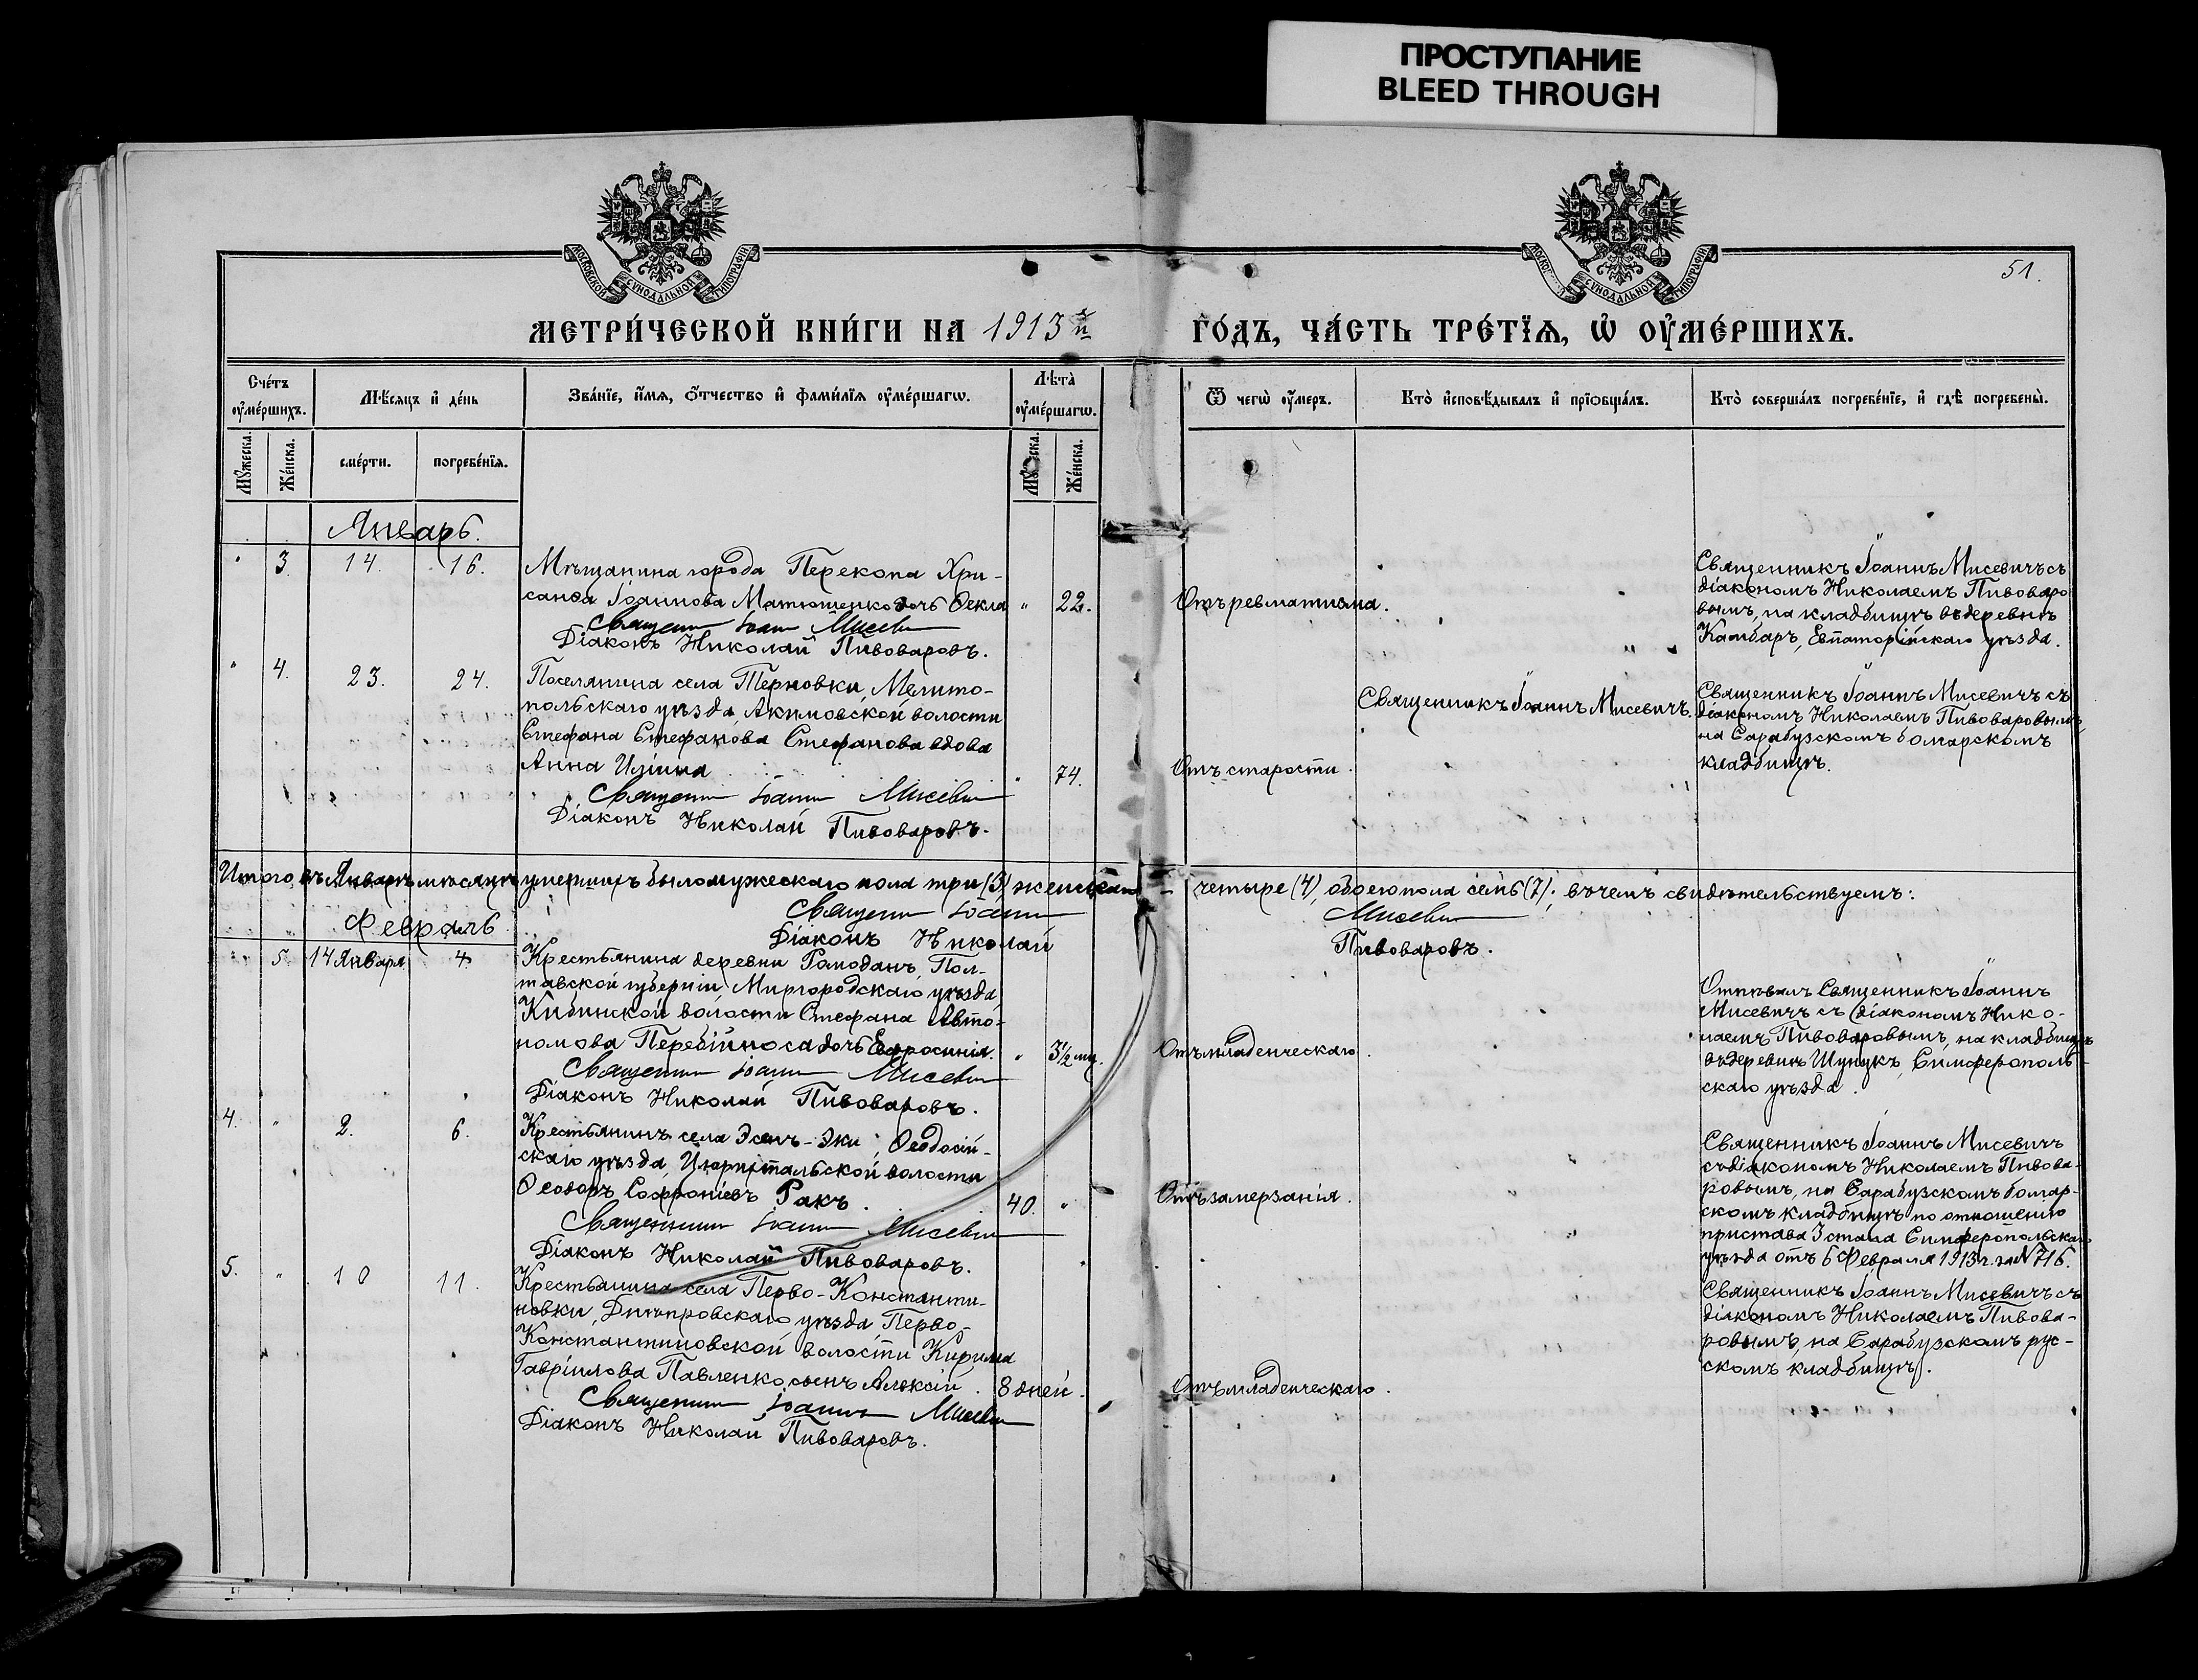 ПРОСТУПАНИЕ
BLEED THROUGH
МОСКОВСКОЙ СѴНОДАЛЬНОЙ ТИПОГРАФІИ
СѴНОДАЛЬНОЙ ТИПОГРАФІИ
51.
МЕТРИ́ЧЕСКОЙ КНИ́ГИ НА 1913й
ГО́ДЪ, ЧА́СТЬ ТРЕ́ТЇѦ, Ѡ҆ ОУ҆МЕ́РШИХЪ.
Сче́тъ оу҆ме́ршихъ.
Мѣ́сяцъ и҆ де́нь
Зва́нїе, и҆́мя, ѻ҆́тчество и҆ фами́лїя оу҆ме́ршагѡ.
Лѣ́та оу҆ме́ршагѡ.
Ѿ чегѡ̀ оу҆́меръ.
Кто̀ и҆сповѣ́дывалъ и҆ прїѻбща́лъ.
Кто̀ соверша́лъ погребе́нїе, и҆ гдѣ̀ погребены̀.
Мꙋ́жеска.
Же́нска.
сме́рти.
погребе́нїя.
Же́нска.
Январь.
" 3. 14. 16.
Мѣщанина города Перекопа Хри-
санѳа Іоаннова Матюшенко дочь Ѳекла " 22.
Священникъ Іоаннъ Мисевичъ
Діаконъ Николай Пивоваровъ.
Отъ ревматизма.
Священникъ Іоаннъ Мисевичъ съ
діакономъ Николаемъ Пивоваро
вымъ, на кладбищѣ въ деревнѣ
Камбаръ, Евпаторійскаго уѣзда.
" 4. 23. 24.
Поселянина села Терновки, Мелито-
польскаго уѣзда, Акимовской волости
Стефана Стефанова Стефанова вдова
Анна Иліина " 74.
Священникъ Іоаннъ Мисевичъ
Діаконъ Николай Пивоваровъ.
Отъ старости.
Священникъ Іоаннъ Мисевичъ.
Священникъ Іоаннъ Мисевичъ съ
діакономъ Николаемъ Пивоваровымъ,
на Сарабузскомъ болгарскомъ
кладбищѣ.
Итого въ Январѣ мѣсяцѣ умершихъ было мужескаго пола три (3) женскаго – четыре (4), обоего пола семь (7); въ чемъ свидѣтельствуемъ:
Священникъ Іоаннъ Мисевичъ
Діаконъ Николай Пивоваровъ.
Февраль
5. 14 Января 4.
Крестьянина деревни Ромоданъ, Пол-
тавской губерніи, Миргородскаго уѣзда
Кибинской волости Стефана Авто-
номова Перебійноса дочь Евфросинія. " 3½ мц.
Священникъ Іоаннъ Мисевичъ
Діаконъ Николай Пивоваровъ.
Отъ младенческаго.
Отпѣвалъ Священникъ Іоаннъ
Мисевичъ съ діакономъ Нико-
лаемъ Пивоваровымъ, на кладбищѣ
въ деревнѣ Шунукъ, Симферополь-
скаго уѣзда.
4. " 2. 6.
Крестьянинъ села Эсенъ-Эки, Ѳеодосій-
скаго уѣзда, Цюрихтальской волости
Ѳеодоръ Софроніевъ Ракъ. 40. "
Священникъ Іоаннъ Мисевичъ
Діаконъ Николай Пивоваровъ.
Отъ замерзанія.
Священникъ Іоаннъ Мисевичъ
съ діакономъ Николаемъ Пивова-
ровымъ, на Сарабузскомъ болгар-
скомъ кладбищѣ по отношенію
пристава 3 стана Симферопольскаго
уѣзда отъ 6 Февраля 1913 г. за № 716.
5. " 10 11.
Крестьянина села Перво-Константи-
новки, Днѣпровскаго уѣзда, Перво-
Константиновской волости Кирила
Гавріилова Павленко сынъ Алексій. 8 дней.
Священникъ Іоаннъ Мисевичъ
Діаконъ Николай Пивоваровъ.
Отъ младенческаго.
Священникъ Іоаннъ Мисевичъ съ
діакономъ Николаемъ Пивова-
ровымъ, на Сарабузскомъ рус-
скомъ кладбищѣ.